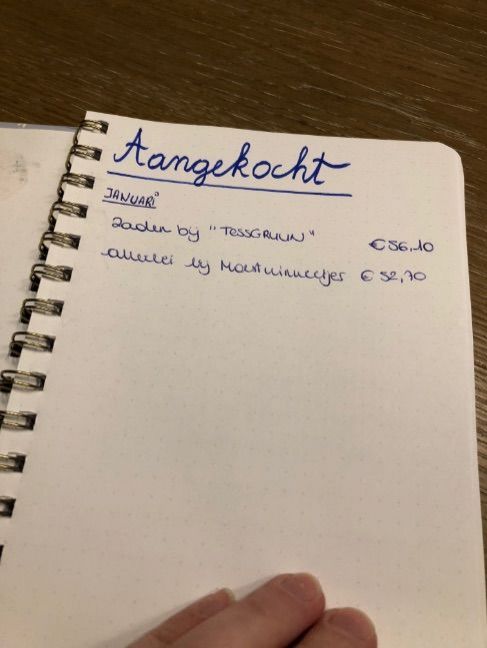 Aangekocht
JANUARI
Zaden by "TESSGRUUN" €56,10
allerlei by Moestuinweetjes € 52,70